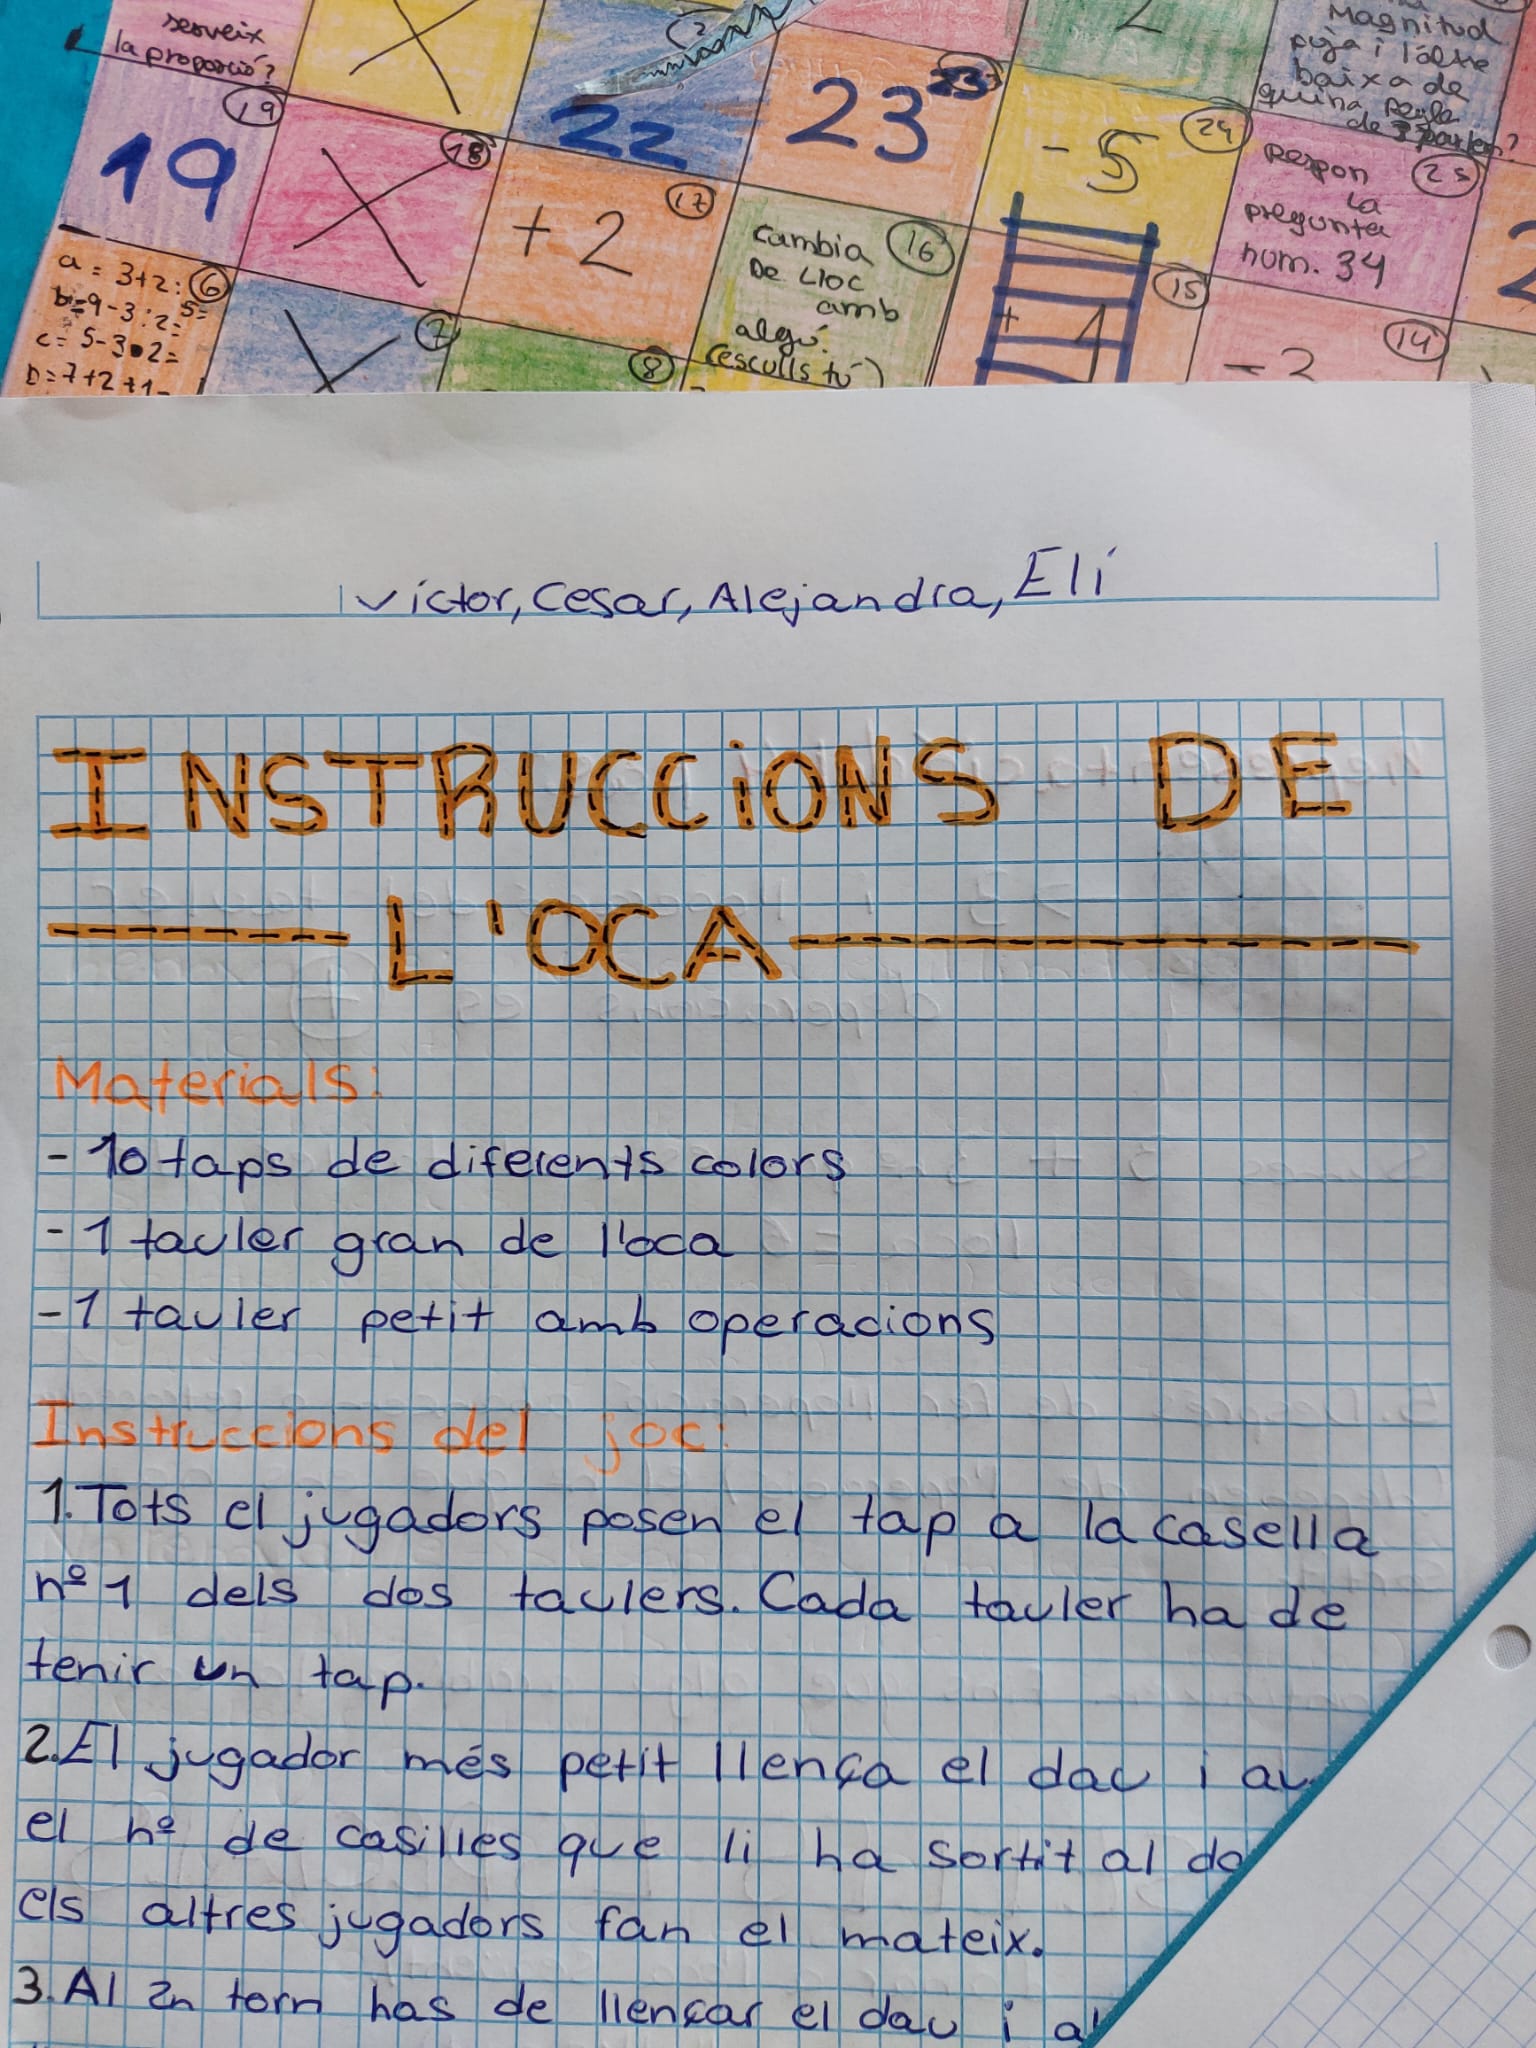 serveix
la proporció?
19
19
18
22
+ 2
17
23
23
- 5
24
Magnitud
puja i l'altre
baixa de
quina regla
de 3 parlem?
respon
la
pregunta
num. 34
25
a = 3+2:
5=
6
b=9-3:2=
c= 5-3•2=
D=7+2+1-
7
8
cambia
16
De LLoc
amb
algú.
(esculls tú)
+ 1
15
-2
14
Víctor, Cesar, Alejandra, Eli
INSTRUCCiONS DE
L'OCA
Materials:
- 10 taps de diferents colors
- 1 tauler gran de l'oca
- 1 tauler petit amb operacions
Instruccions del joc:
1. Tots el jugadors posen el tap a la casella
nº 1 dels dos taulers. Cada tauler ha de
tenir un tap.
2. El jugador més petit llença el dau i av
el nº de casilles que li ha sortit al da
els altres jugadors fan el mateix.
3. Al 2n torn has de llençar el dau i al